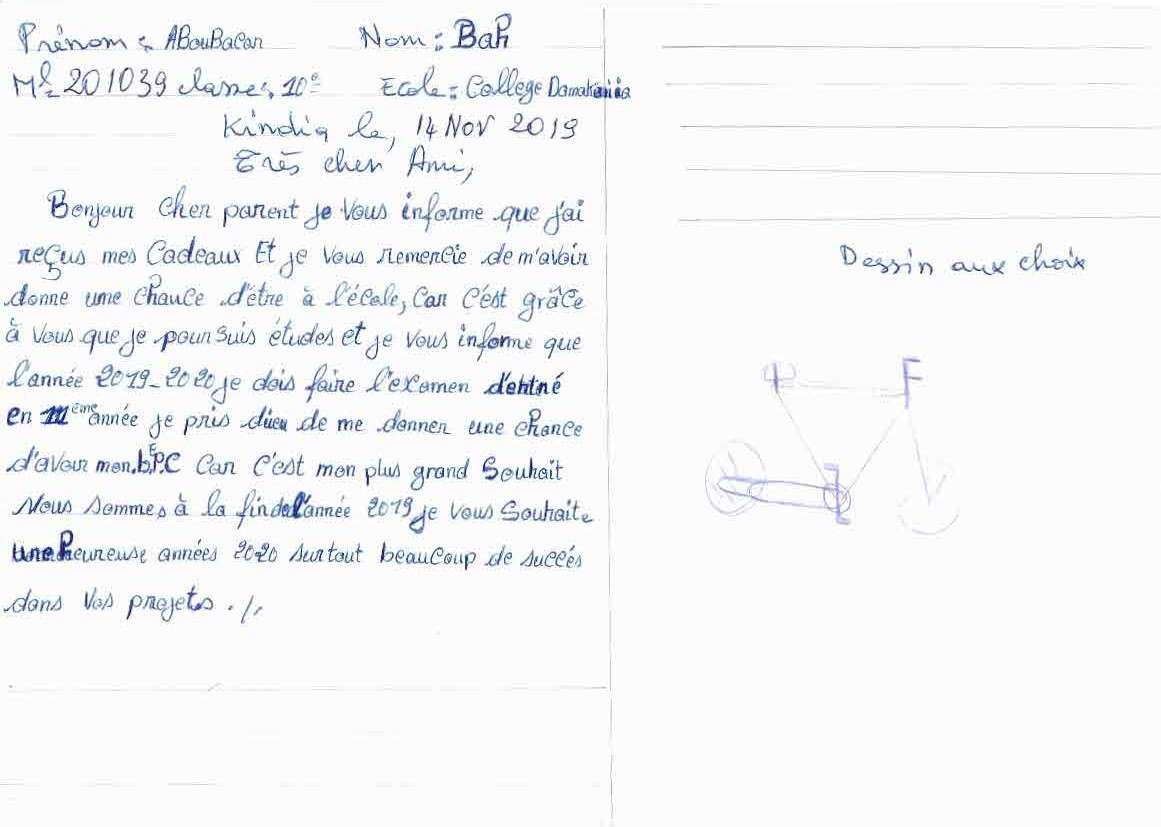 Prénom : ABouBacar Nom : Bah
Mle 201039 classe, 10e Ecole : College Damakania
Kindia le, 14 Nov 2019
Très cher Ami,
Bonjour Cher parent je Vous informe que j'ai
reçus mes Cadeaux Et je Vous remercie de m'avoir
donne une chance d'être à l'école, Car C'ést grâce
à Vous que je poursuis études et je Vous informe que
l'année 2019-2020 je dois faire l'examen d'entné
en 11ème année je pris dieu de me donner une chance
d'avoir mon bEPC Car C'est mon plus grand Souhait
Nous sommes à la fin de l'année 2019 je Vous Souhaite
une heureuse années 2020 surtout beaucoup de succés
dans Vos projets ./.
Dessin aux choix